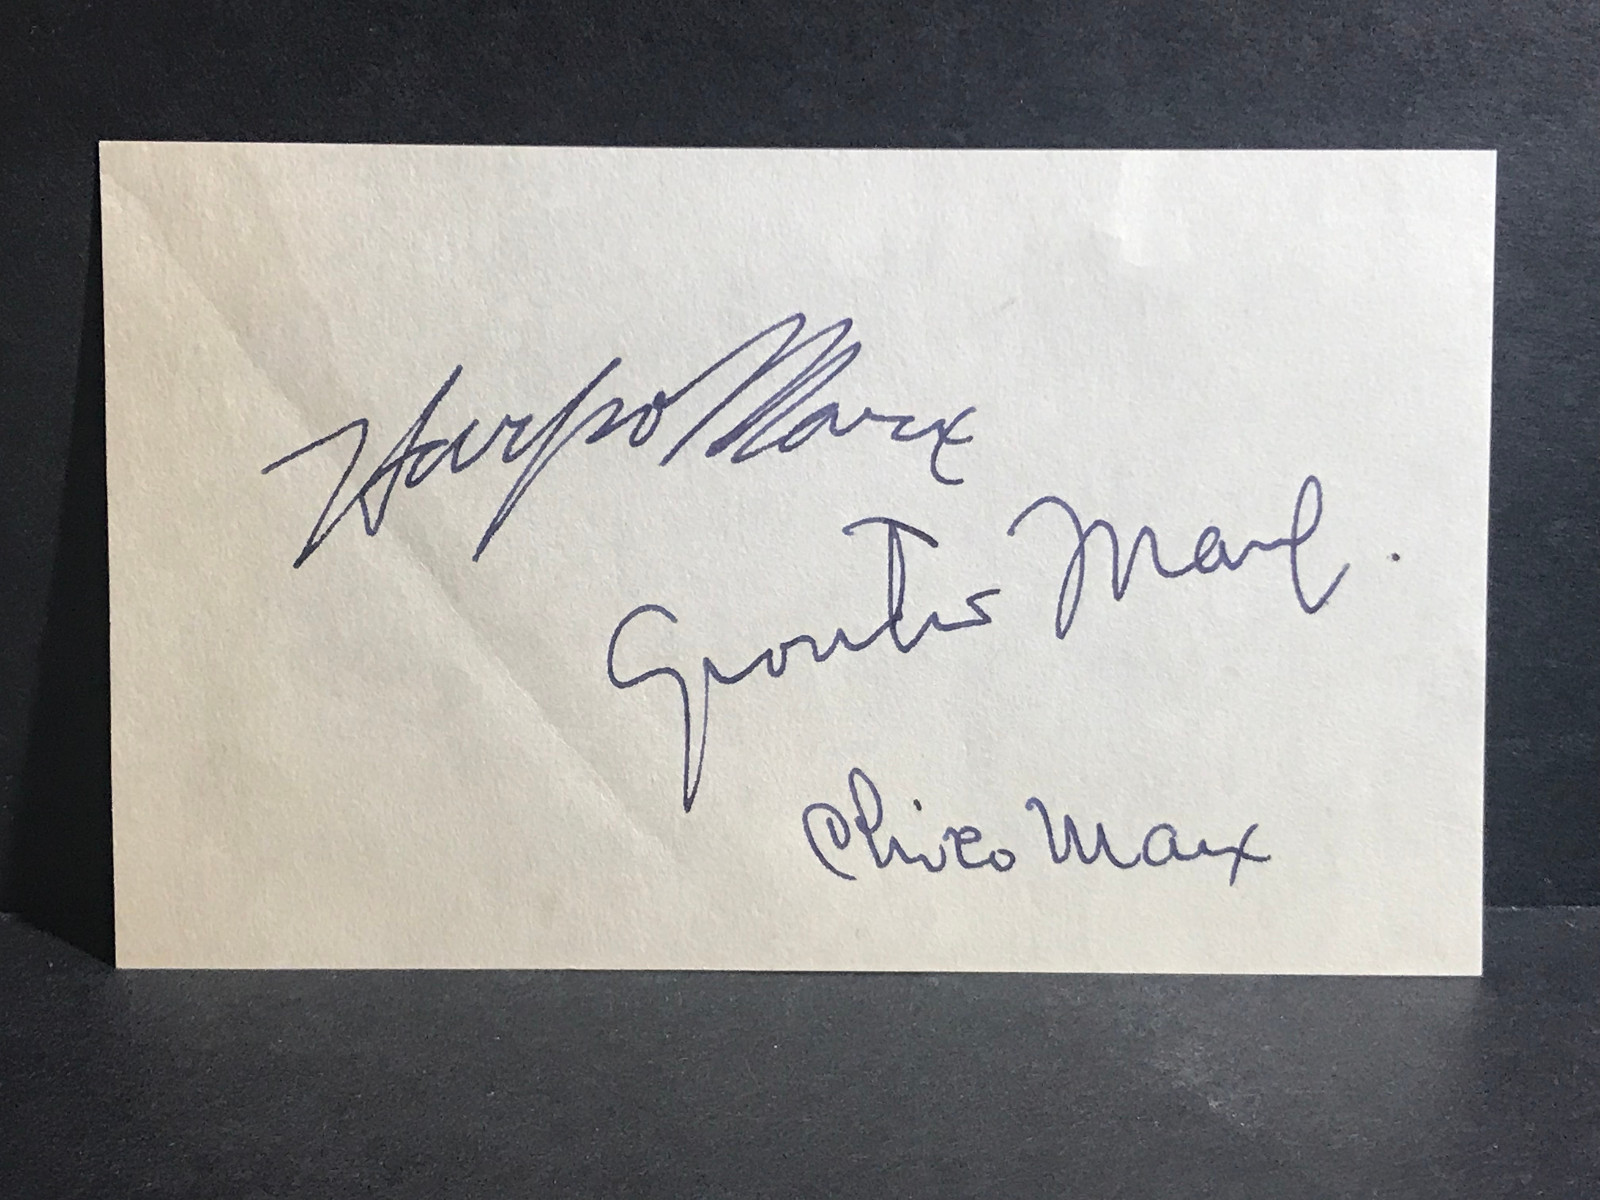 Harpo Marx
Groucho Marx.
Chico Marx